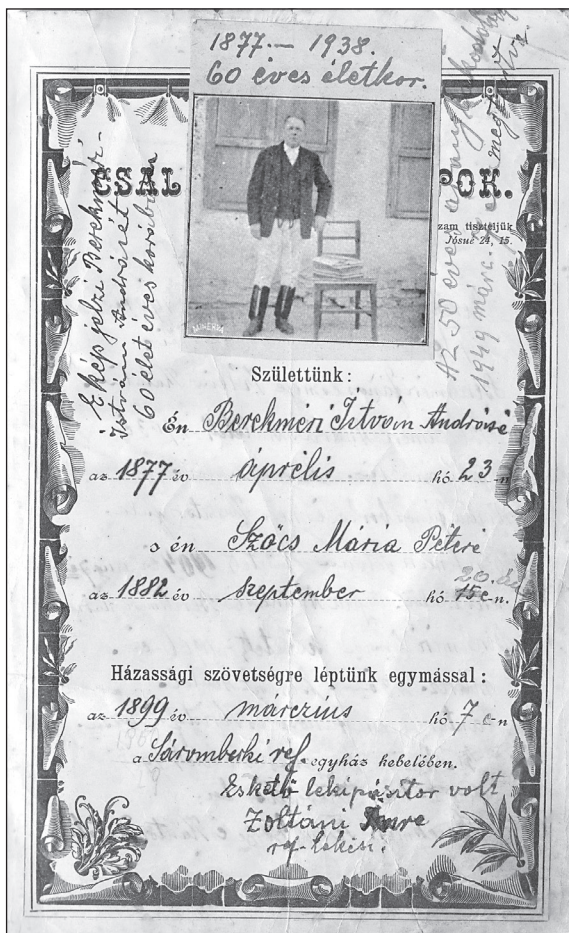 1877.— 1938.
60 éves életkor.
CSAL POK.
zam tiszteljük
Józsué 24, 15.
E kép jelzi Berekméri
István Andrásét
60 élet éves korában
Az 50 éves
1949 márc. 7
MINERVA
Születtünk:
Én Berekméri István Andrásé
az 1877 év április hó 23-n
s én Szőcs Mária Péteré
20.
az 1882 év szeptember hó 15 e-n.
Házassági szövetségre léptünk egymással:
az 1899 év márczius hó 7 e-n
a Sáromberki ref. egyház kebelében.
Eskető lelkipásitor volt
Zoltáni Imre
ref. lelkési.